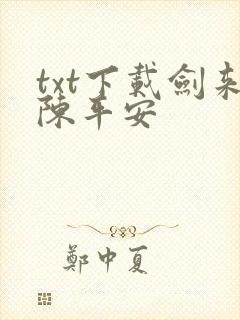 txt下載劍來
陳平安
鄭中夏